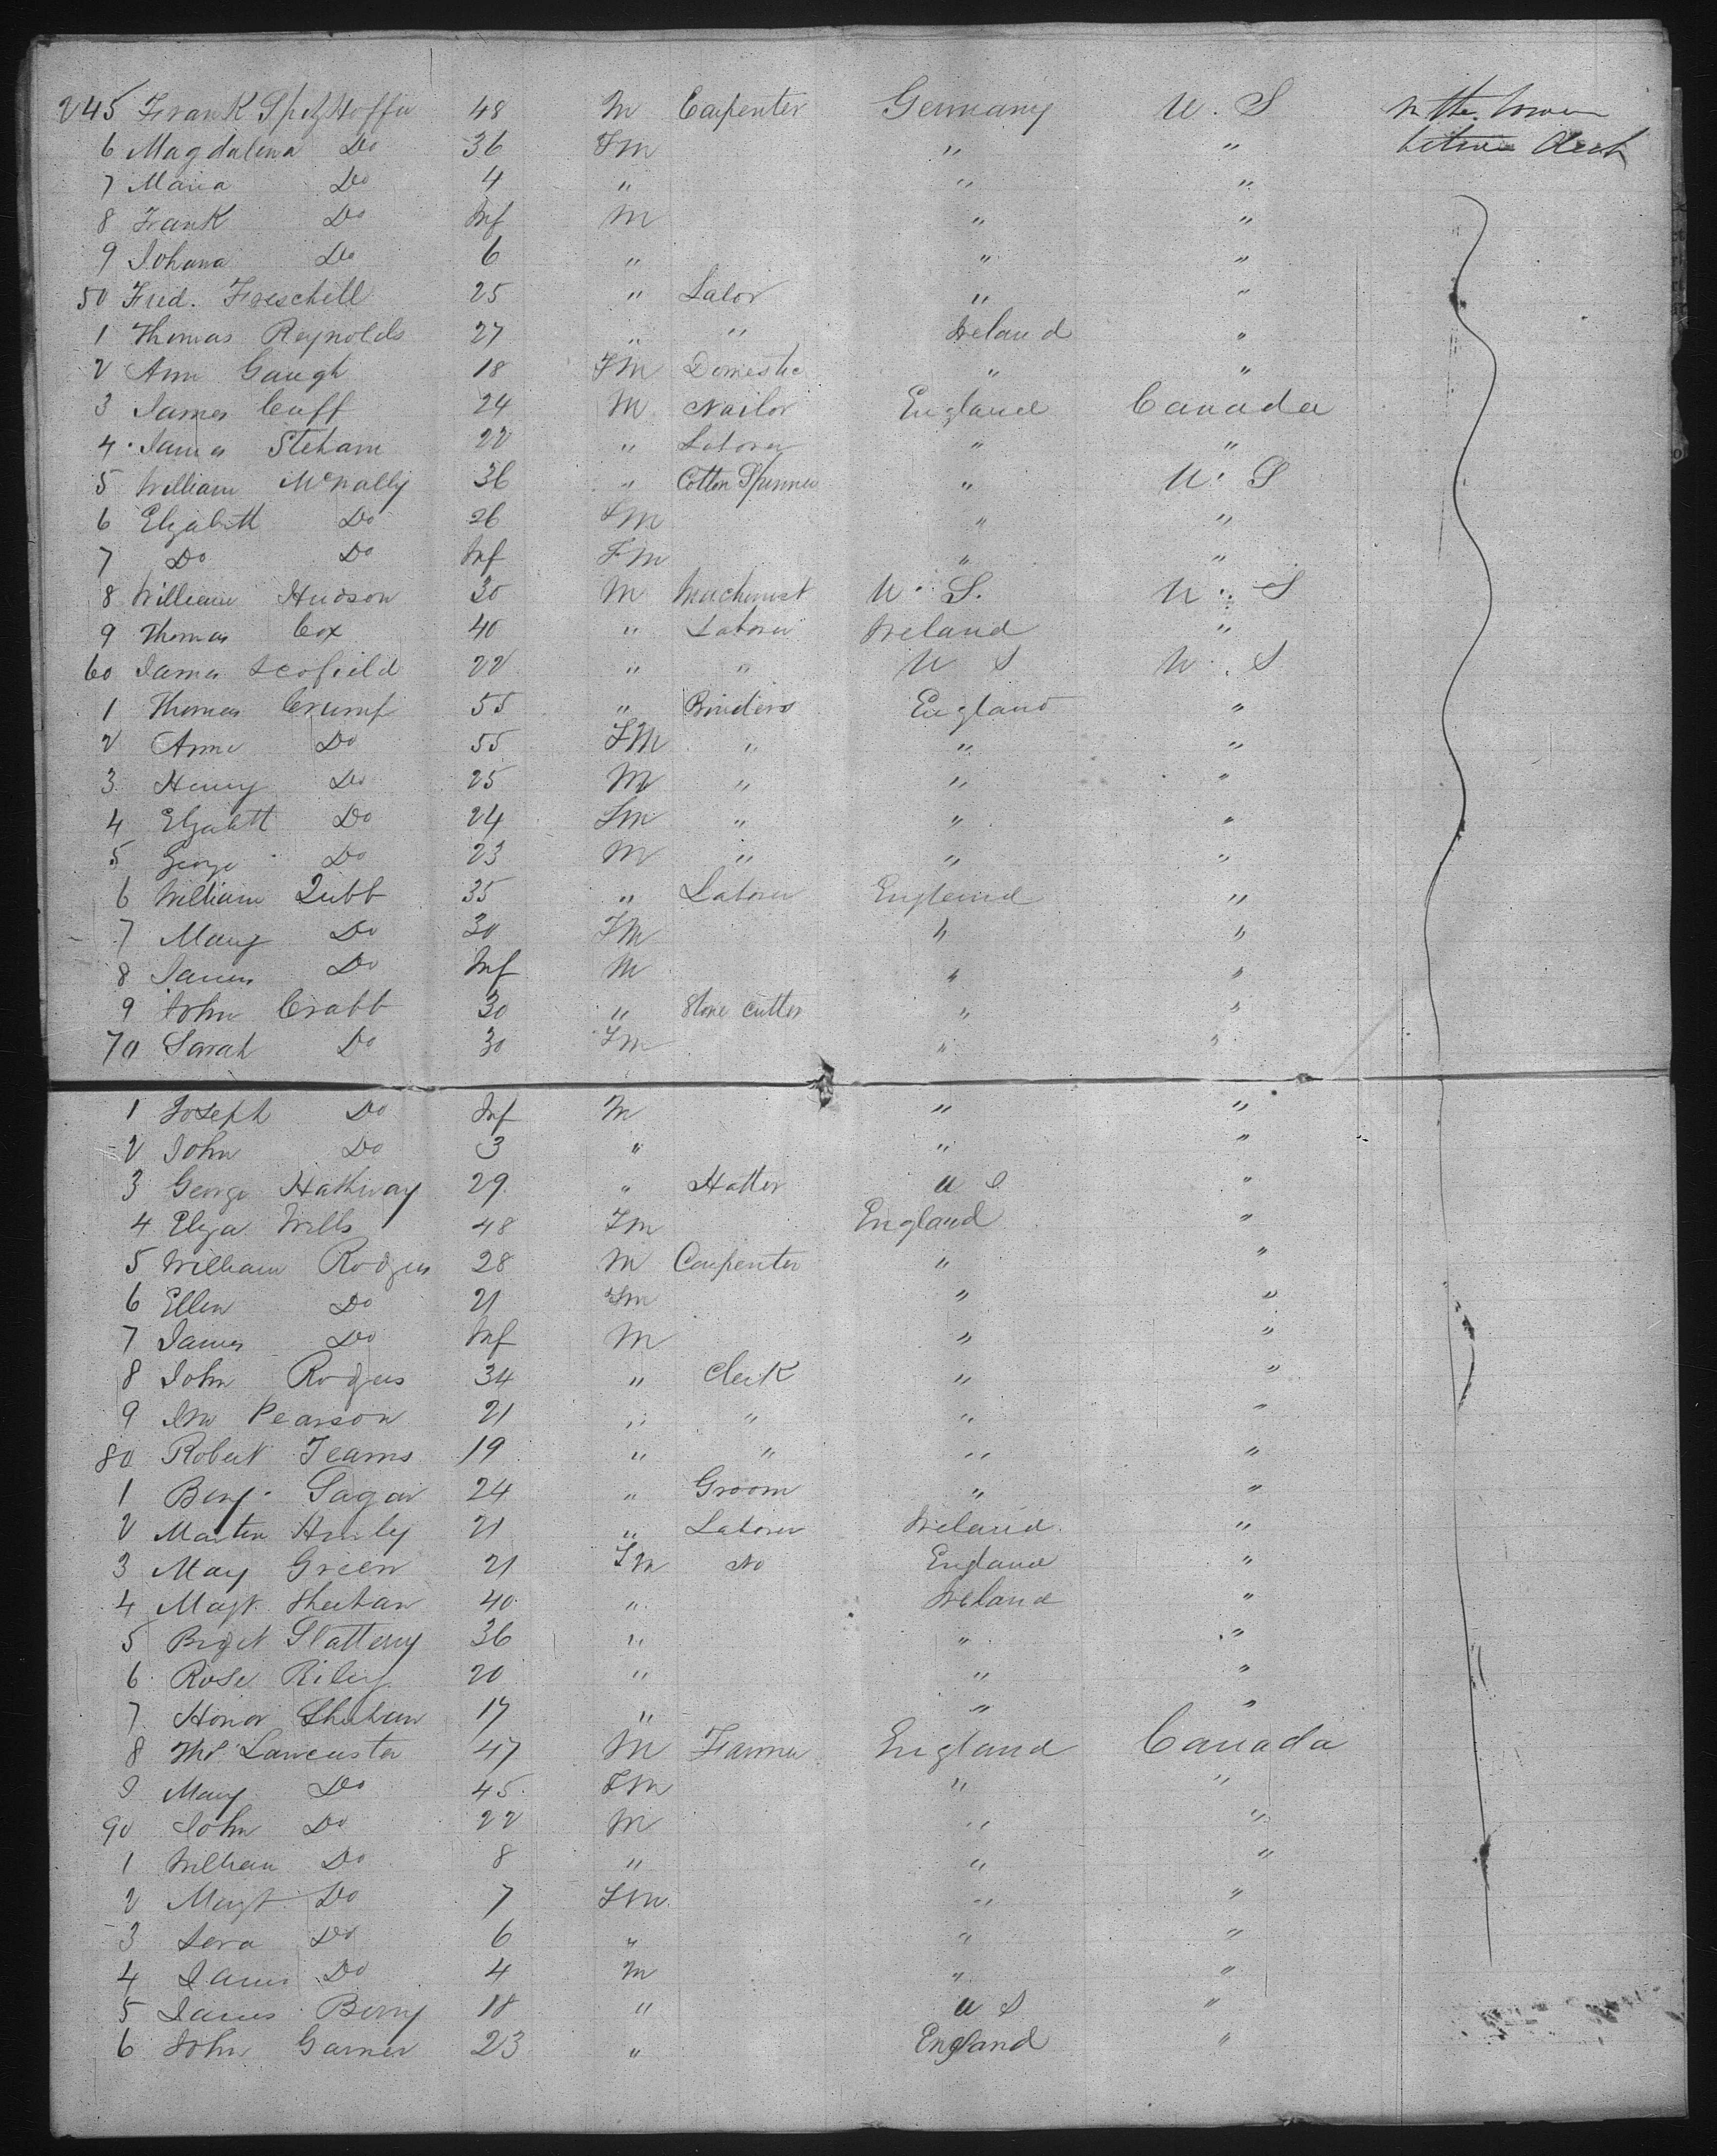 245 Frank SpitzHoffer 48 M Carpenter Germany U. S In the lower
6 Magdalena Do 36 Fm " " between deck
7 Maria Do 4 " " "
8 Frank Do Inf M " "
9 Johana Do 6 " " "
50 Fred. Freschell 25 " Labor " "
1 Thomas Reynolds 27 " " Ireland "
2 Ann Gaugh 18 FM Domestic " "
3 James Cuff 24 M Nailor England Canada
4 James Steham 22 " Laborer " "
5 William McNally 36 " Cotton Spinner " U. S
6 Elizabeth Do 26 Fm " "
7 Do Do Inf Fm " "
8 William Hudson 30 M Machinist U. S. U. S
9 Thomas Cox 40 " Laborer Ireland "
60 James Scofield 22 " " U S U. S
1 Thomas Crump 55 " Binders England "
2 Anne Do 55 FM " " "
3 Henry Do 25 M " " "
4 Elizabeth Do 24 Fm " " "
5 George Do 23 M " " "
6 William Zubb 35 " Laborer England "
7 Mary Do 30 FM " "
8 James Do Inf M " "
9 John Crabb 30 " Stone Cutter " "
70 Sarah Do 30 Fm " "
1 Joseph Do Inf M " "
2 John Do 3 " " "
3 George Hathway 29 " Hatter U S "
4 Eliza Wills 48 Fm England "
5 William Rodgers 28 M Carpenter " "
6 Ellen Do 21 Fm " "
7 James Do Inf M " "
8 John Rodgers 34 " Clerk " "
9 Jno Pearson 21 " " " "
80 Robert Teams 19 " " " "
1 Benj. Sagar 24 " Groom " "
2 Martin 21 " Laborer Ireland "
3 May Green 21 Fm No England "
4 Magt. Sheehan 40 " Ireland "
5 Briget Slattery 36 " " "
6 Rose Riley 20 " " "
7 Honor Shehan 17 " " "
8 Thos Lancaster 47 M Farmer England Canada
9 Mary Do 45 FM " "
90 John Do 22 M " "
1 William Do 8 " " "
2 Magt. Do 7 Fm " "
3 Sera Do 6 " " "
4 James Do 4 M " "
5 James Berry 18 " U S "
6 John Garner 23 " England "